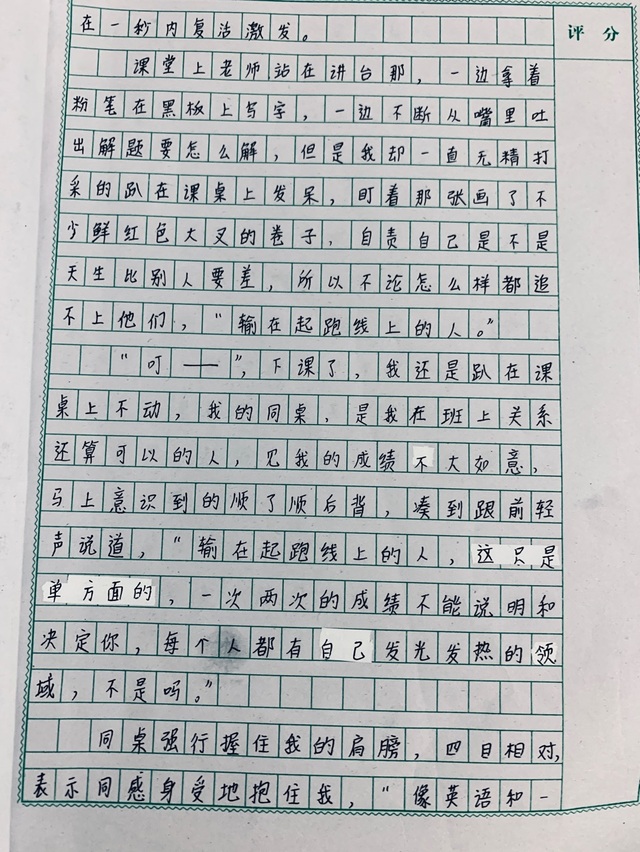 评分
在一秒内复沽激发。
课堂上老师站在讲台那，一边拿着
粉笔在黑板上写字，一边不断从嘴里吐
出解题要怎么解，但是我却一直无精打
采的趴在课桌上发呆，盯着那张画了不
少鲜红色大叉的卷子，自责自己是不是
天生比别人要差，所以不论怎么样都追
不上他们，“输在起跑线上的人。”
“叮——”，下课了，我还是趴在课
桌上不动，我的同桌，是我在班上关系
还算可以的人，见我的成绩不大如意，
马上意识到的顺了顺后背，凑到跟前轻
声说道，“输在起跑线上的人，这只是
单方面的，一次两次的成绩不能说明和
决定你，每个人都有自己发光发热的领
域，不是吗。”
同桌强行握住我的肩膀，四目相对，
表示同感身受地抱住我，“像英语和一